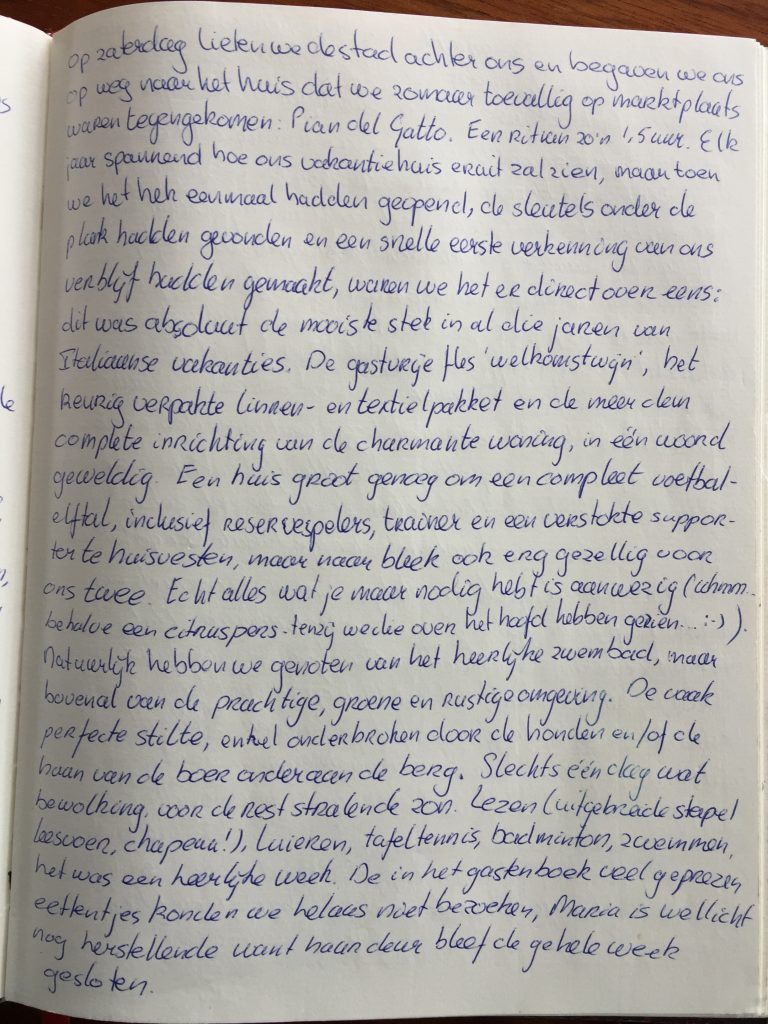 op zaterdag lieten we de stad achter ons en begaven we ons
op weg naar het huis dat we zomaar toevallig op marktplaats
waren tegengekomen: Pian del Gatto. Een rit van zo'n 1,5 uur. Elk
jaar spannend hoe ons vakantiehuis eruit zal zien, maar toen
we het hek eenmaal hadden geopend, de sleutels onder de
plank hadden gevonden en een snelle eerste verkenning van ons
verblijf hadden gemaakt, waren we het er direct over eens:
dit was absoluut de mooiste stek in al die jaren van
Italiaanse vakanties. De gastvrije fles 'welkomstwijn', het
keurig verpakte linnen- en textielpakket en de meer dan
complete inrichting van de charmante woning, in één woord
geweldig. Een huis groot genoeg om een compleet voetbal-
elftal, inclusief reservespelers, trainer en een verstokte suppor-
ter te huisvesten, maar naar bleek ook erg gezellig voor
ons twee. Echt alles wat je maar nodig hebt is aanwezig (uhmm...
behalve een citruspers - tenzij we die over het hoofd hebben gezien... :-) ).
Natuurlijk hebben we genoten van het heerlijke zwembad, maar
bovenal van de prachtige, groene en rustige omgeving. De vaak
perfecte stilte, enkel onderbroken door de honden en/of de
haan van de boer onderaan de berg. Slechts één dag wat
bewolking, voor de rest stralende zon. Lezen (uitgebreide stapel
leesvoer, chapeau!), luieren, tafeltennis, badminton, zwemmen,
het was een heerlijke week. De in het gastenboek veel geprezen
eettentjes konden we helaas niet bezoeken, Maria is wellicht
nog herstellende want haar deur bleef de gehele week
gesloten.